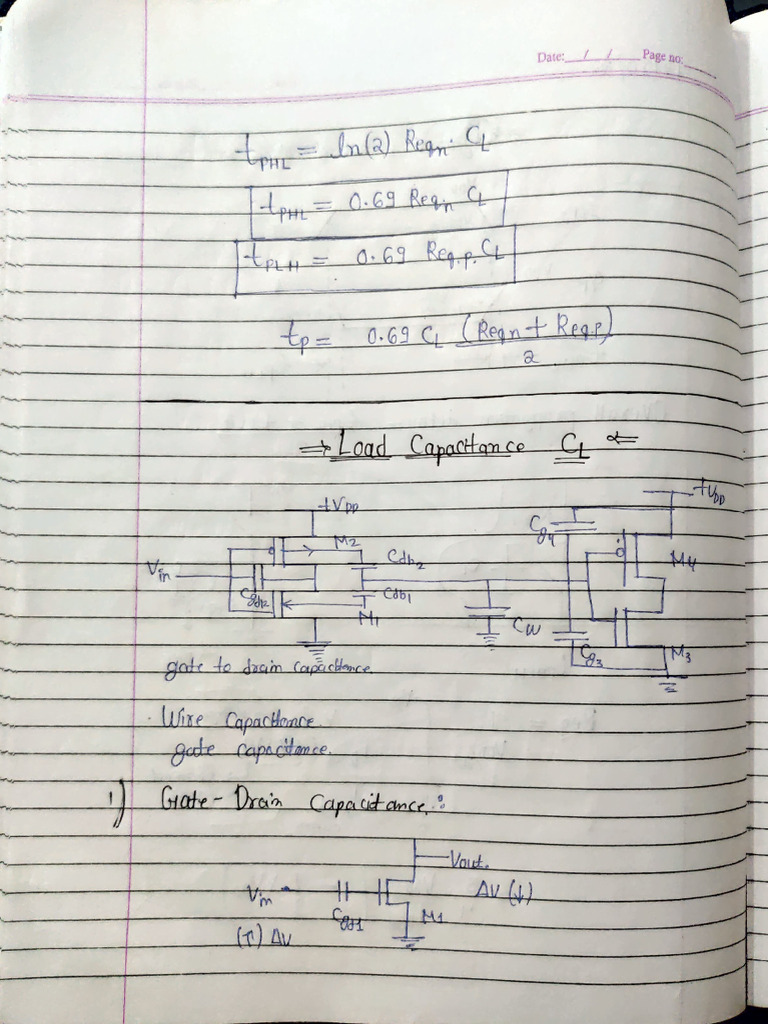 Date: / / Page no:
tPHL = ln(2) Reqn. CL
tPHL = 0.69 Reqn CL
tPLH = 0.69 Req.p. CL
tp = 0.69 CL (Reqn + Req.p)
2
⇒ Load Capacitance CL ⇐
+VDD
+VDD
Cg4
M2
Vin
Cdb2
M4
Cgd12
Cdb1
M1
CW
Cg3
M3
gate to drain capacitence
Wire Capacitance
gate capacitance.
1) Gate-Drain Capacitance:
Vout.
Vin
ΔV (↓)
Cgd1
M1
(↑) ΔV